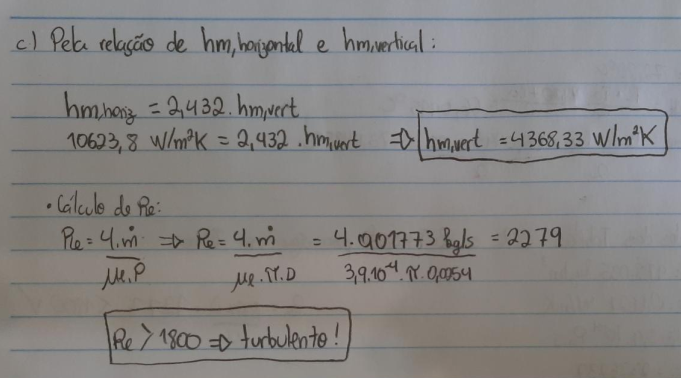 c) Pela relação de hm,horizontal e hm,vertical:
hm,horiz = 2,432 . hm,vert
10623,8 W/m²K = 2,432 . hm,vert => hm,vert = 4368,33 W/m²K
• Cálculo de Re:
Re = 4.ṁ / μℓ.P => Re = 4.ṁ / μℓ.π.D = 4.0,01773 kg/s / 3,9.10⁻⁴.π.0,0254 = 2279
Re > 1800 => turbulento!